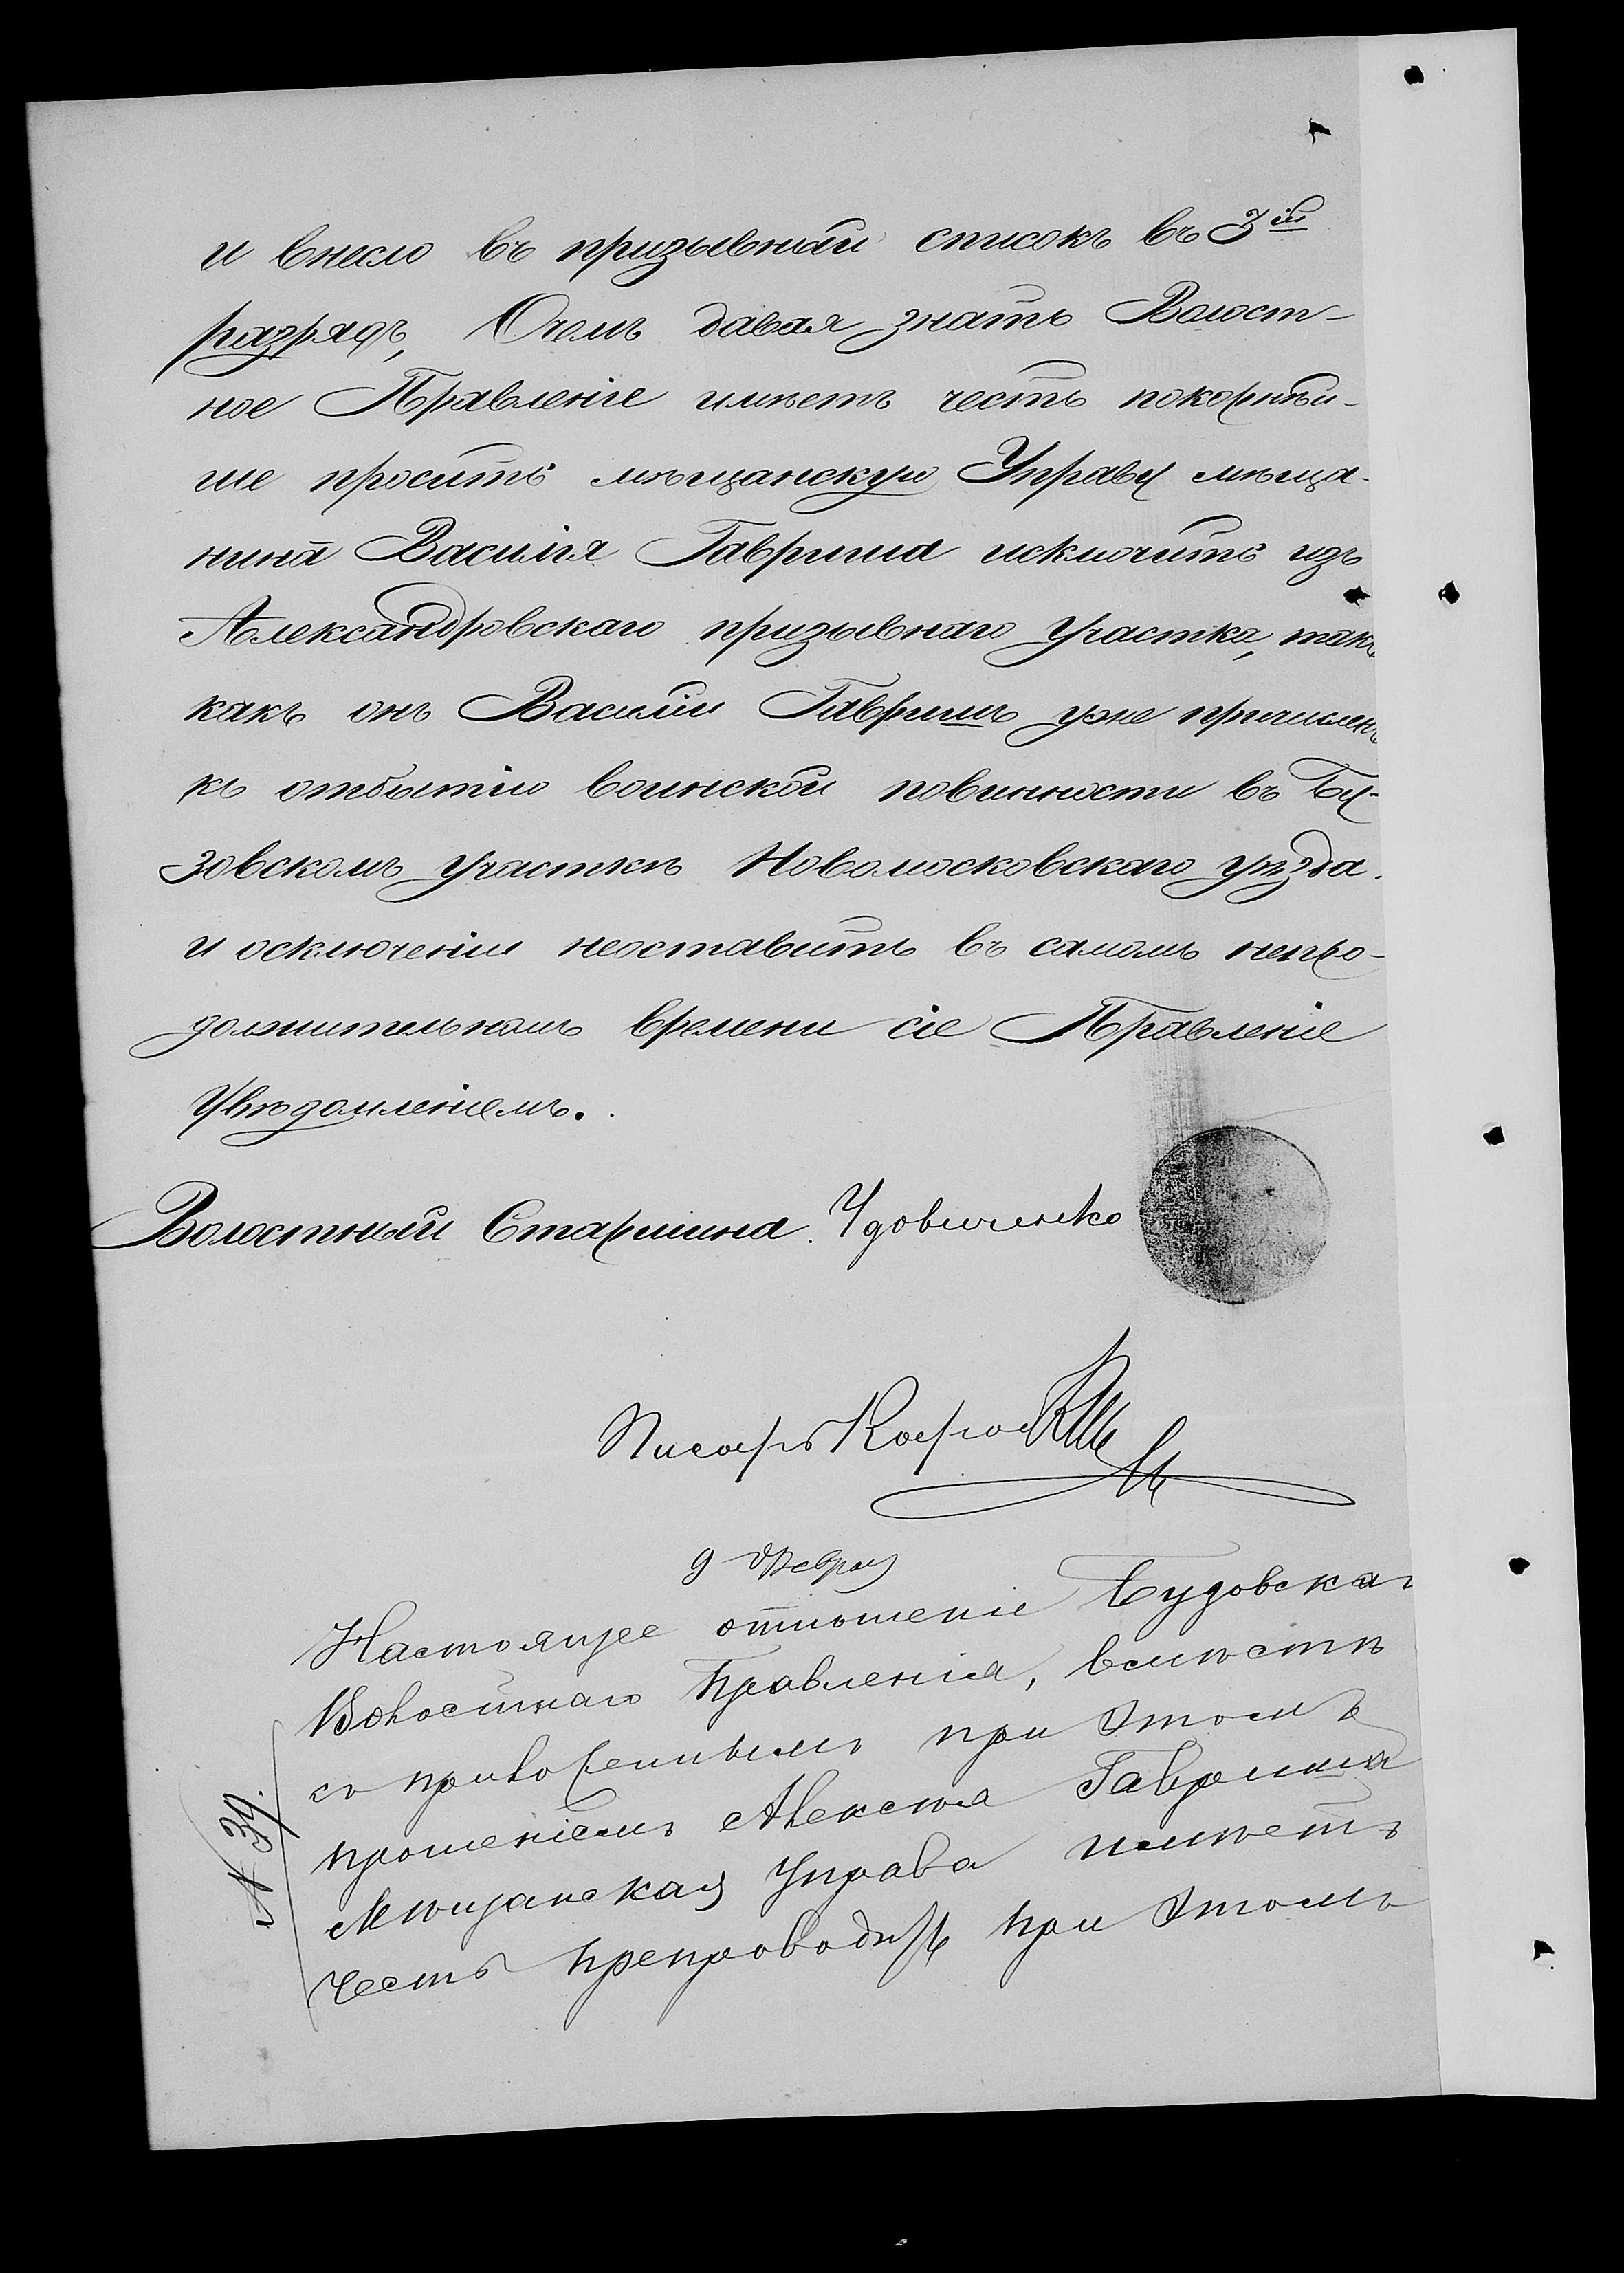 и внесло въ призывной списокъ въ 3ій
разрядъ, Очемъ давая знать Волост-
ное Правленіе имѣетъ честь покорнѣй-
ше просить мѣщанскую Управу мѣща-
нина Василія Гавриша исключить изъ
Александровскаго призывнаго участка, такъ
какъ онъ Василій Гавришъ уже причисленъ
къ отбытію воинской повинности въ Бу-
зовскомъ участкѣ Новомосковскаго уѣзда.
и осключеніи неоставить въ самомъ непро-
должительномъ времени сіе Правленіе
Увѣдомленіемъ.
Волостный Старшина Удовиченко
Писарь
9 Февраля
Настоящее отношеніе Бузовскаг
Волостнаго Правленія, вмѣстѣ
съ приложеннымъ при этомъ
прошеніемъ Алексѣя Гавриша
Мѣщанская Управа имѣетъ
честь препроводить при этомъ
№ 39.